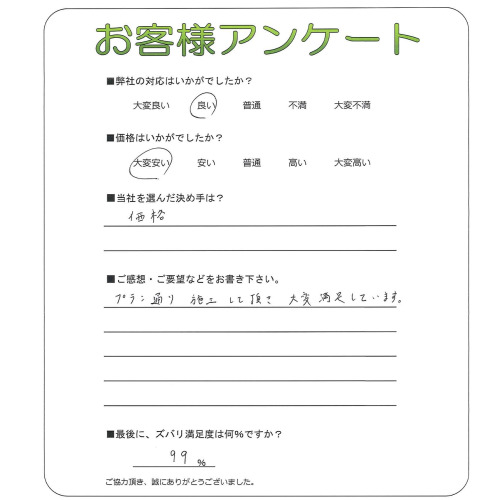 お客様アンケート
■弊社の対応はいかがでしたか？
大変良い 良い 普通 不満 大変不満
■価格はいかがでしたか？
大変安い 安い 普通 高い 大変高い
■当社を選んだ決め手は？
価格
■ご感想・ご要望などをお書き下さい。
プラン通り 施工して頂き 大変満足しています。
■最後に、ズバリ満足度は何%ですか？
99 %
ご協力頂き、誠にありがとうございました。